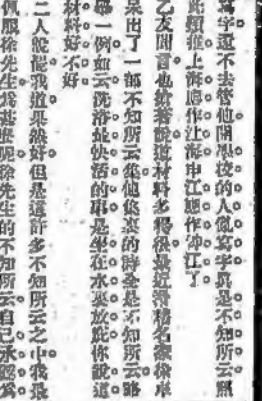 寫字還不去管他開學校的人偏寫字眞是不知所云照
此類推上海應作让海申江應作冲江了
乙友聞言也歎着說道材料多得很最近滑稽名家徐卓
呆出了一部不知所云集他集裏的詩全是不知所云略
舉一例如云洗浴是快活的事是坐在水裏放屁你說道
材料好不好
二人說罷我道果然好但是這許多不知所云之中我最
佩服徐先生爲甚麽呢徐先生的不知所云自己承認爲